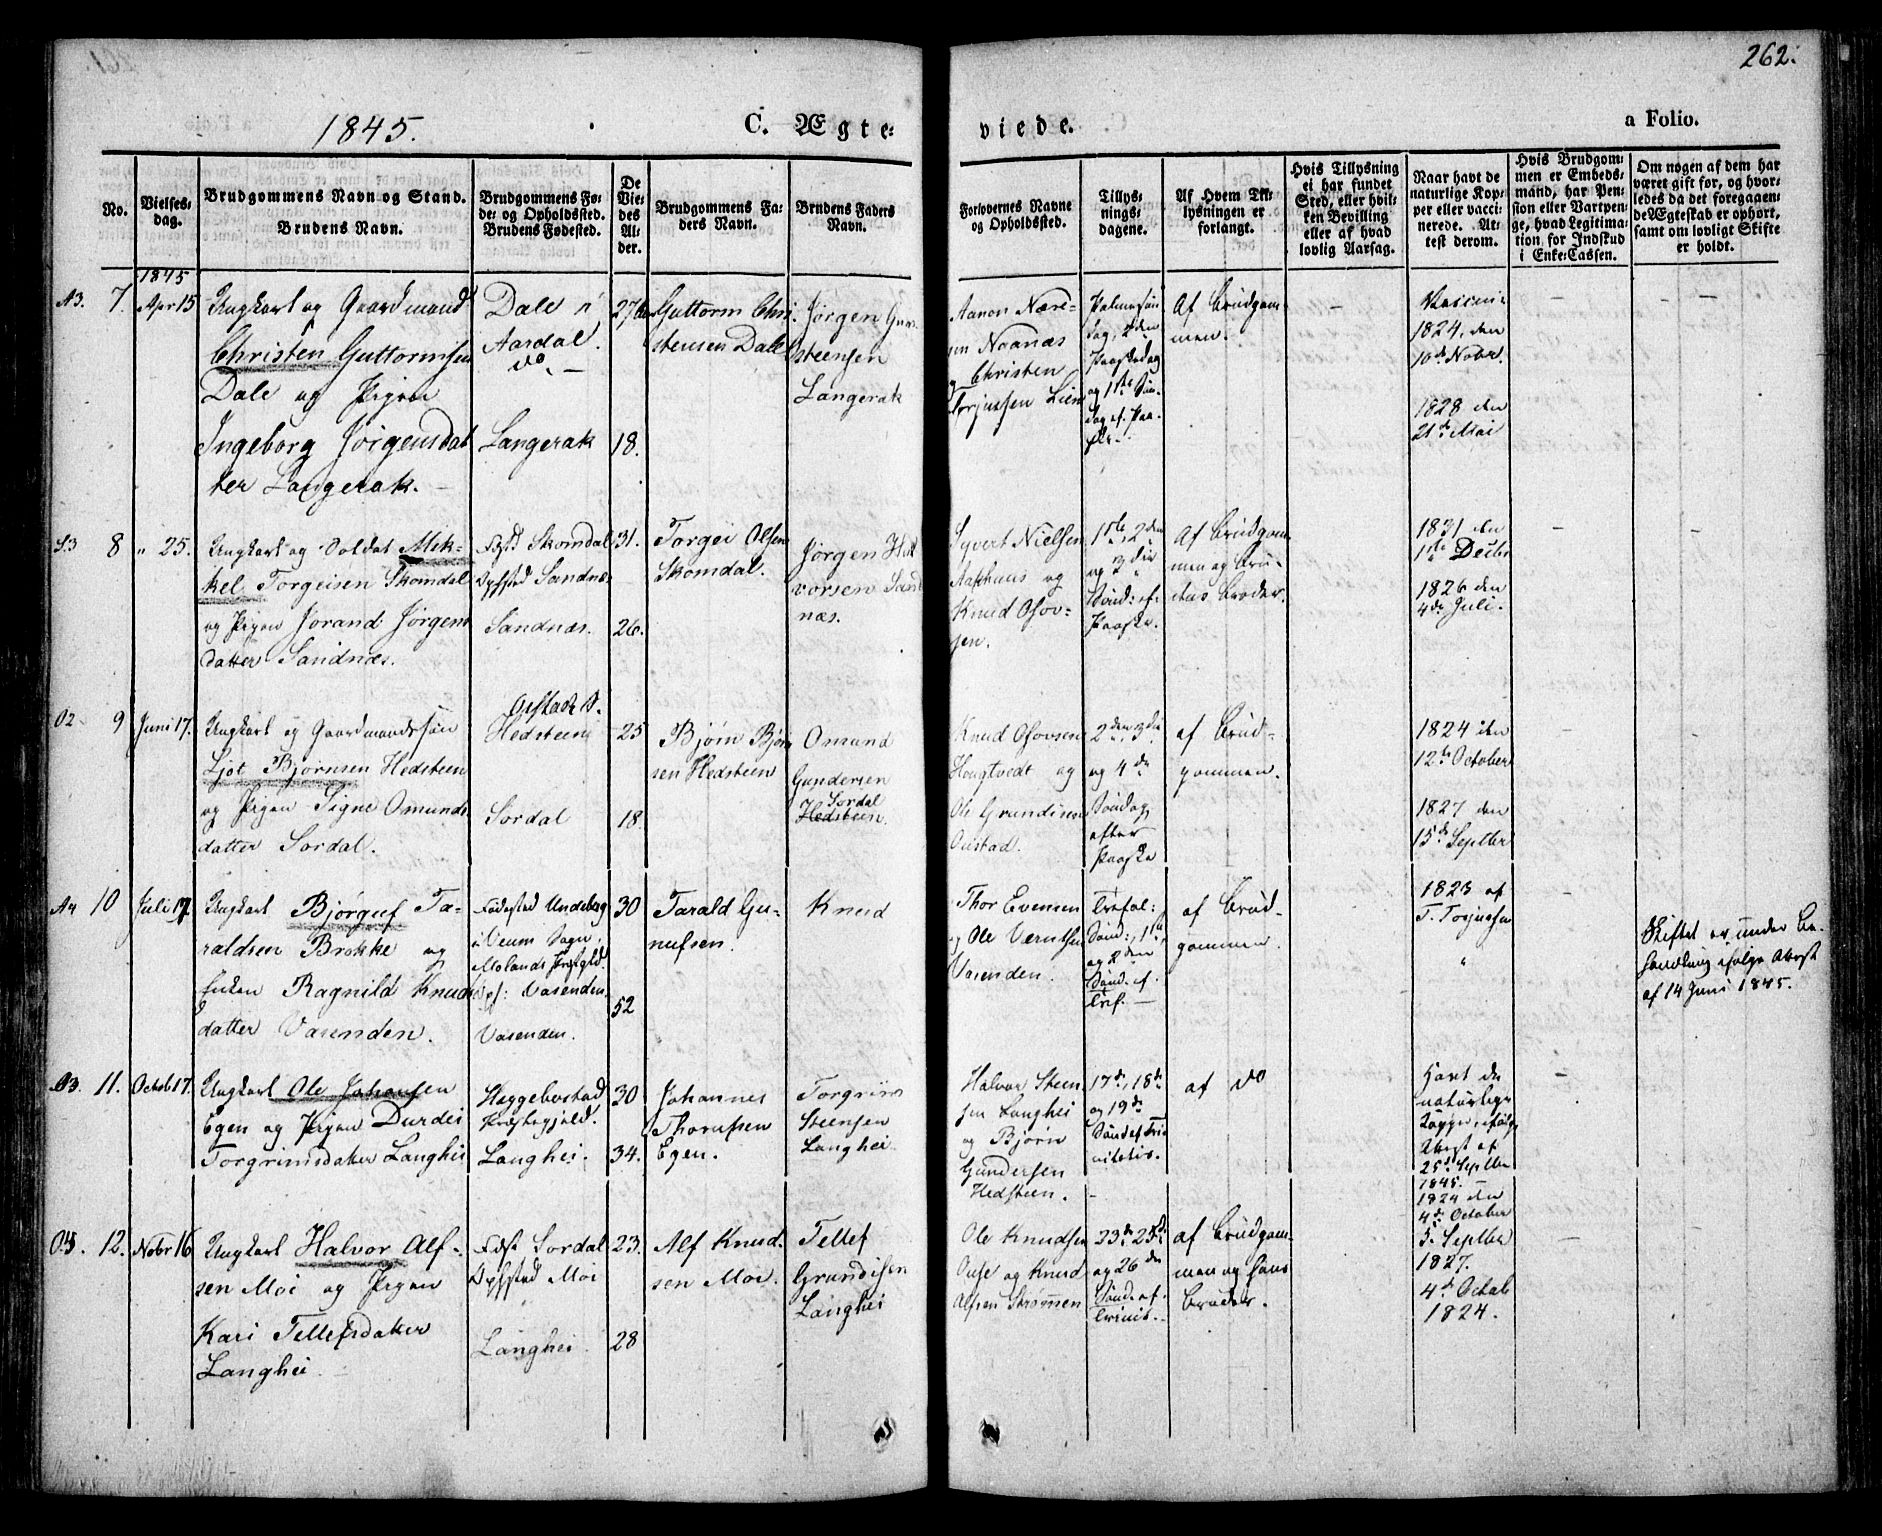 262.
1845.
C. Ægte-
viede.
a Folio.
No.
Vielses-
dag.
Brudgommens Navn og Stand.
Brudens Navn.
Brudgommens Fø-
de- og Opholdssted.
Brudens Fødested.
De
Vie-
des
Al-
der.
Brudgommens Fa-
ders Navn.
Brudens Faders
Navn.
Forlovernes Navne
og Opholdssted.
Tillys-
nings-
dagene.
Af Hvem Til-
lysningen er
forlangt.
Hvis Tillysning
ei har fundet
Sted, eller hvil-
ken Bevilling
eller af hvad
lovlig Aarsag.
Naar havt de
naturlige Kop-
per eller vacci-
nerede. At-
test derom.
Hvis Brudgom-
men er Embeds-
mand, har Pen-
sion eller Vartpen-
ge, hvad Legitima-
tion for Indskud
i Enke-Cassen.
Om nogen af dem har
været gift før, og hvor-
ledes da det foregaaen-
de Ægteskab er ophørt,
samt om lovligt Skifte
er holdt.
1845
A3. 7. Apr 15
Ungkarl og Gaardmand
Christen Guttormsen
Dale og Pigen
Ingeborg Jørgensdat
ter Langerak.
Dale i
Aardal.
do.
Langerak
18.
Guttorm Chri-
stensen Dale
Jørgen
steensen
Langerak
Aanon Næri-
sen Noanæs
og Christen
Torjussen Lien
Palmesøn
dag, 2den
Paaskedag
og 1ste Søn-
dag ef. Paa-
ske.
Af Brudgom-
men.
Vaccin:
1824 den
10de Novbr.
1828 den
21de Mai
S3 8 " 25.
Ungkarl og Soldat Mik-
kel Torgeisen Skomdal
og Pigen Jorand Jørgens
datter Sandnæs.
Skomdal
Sandnæs
Sandnæs.
31.
26.
Torgei Olsen
Skomdal.
Jørgen Hal
vorsen Sand
næs.
Syvert Nielsen
Aasphaus og
Knud Osov-
sen.
1ste, 2den
og 3die
Sønd: ef.
Paaske.
Af Brudgom-
men og Bru-
dens Broder.
1831 den
1ste Decbr
1826 den
4de Juli.
O2 9 Juni 17.
Ungkarl og Gaardmandssøn
Ljot Bjørnsen Hedsteen
og Pigen Signe Omunds
datter Sordal.
Hedsteen
Sordal
25
18.
Bjørn Bjørn
sen Hedsteen
Omund
Gundersen
Sordal
Hedsteen.
Knud Osovsen
Hougtvedt og
Ole Grundesen
Oustad.
2den, 3die
og 4de
Søndag
efter
Paaske
af Brud-
gommen.
1824 den
12te October
1827 den
15de Septbr
A4 10 Juli 17.
Ungkarl Bjørguf Ta-
raldsen Brokke og
Enken Ragnild Knuds
datter Vasenden.
Fødested Undeberg
i Veum Sogn,
Molands Præstegjld.
Vasenden.
Vasenden.
30
52
Tarald Gu-
nufsen.
Knud
Thor Evensen
og Ole Værntsen
Vasenden.
Trefol:
Sønd:, 1ste
og 2den
Sønd. ef.
Tref.
af Brud-
gommen.
1823 af
T. Tosjussen
"
Skiftet er under Be-
handling ifølge Attest
af 14 Juni 1845.
O3. 11. Octob 17.
Ungkarl Ole Johansen
Egen og Pigen Durdei
Torgrimsdatter Langhei
Heggebostad
Præstegjeld.
Langhei.
30
34.
Johannes
Thorufsen
Egen.
Torgrim
Steensen
Langhei.
Halvor Steen
sen Langhei
og Bjørn
Gundersen
Hedsteen.
17de, 18de
og 19de
Sønd ef Tri
nitatis.
af do
Havt de
naturlige
Kopper, ifølge
Attest af
25de Septbr
1845.
O3. 12. Novbr 16
Ungkarl Halvor Alf-
sen Moi og Pigen
Kari Tellefsdatter
Langhei.
Sordal
Moi
Langhei.
23.
28
Alf Knud-
sen Moi.
Tellef
Grundisen
Langhei
Ole Knudsen
Ouse og Knud
Alfsen Strømmen
23de, 25de
og 26de
Sønd. ef.
Trinit.
af Brudgom-
men og hans
Broder.
1824 den
4de October
5. Septbr
1827.
4de Octob
1824.